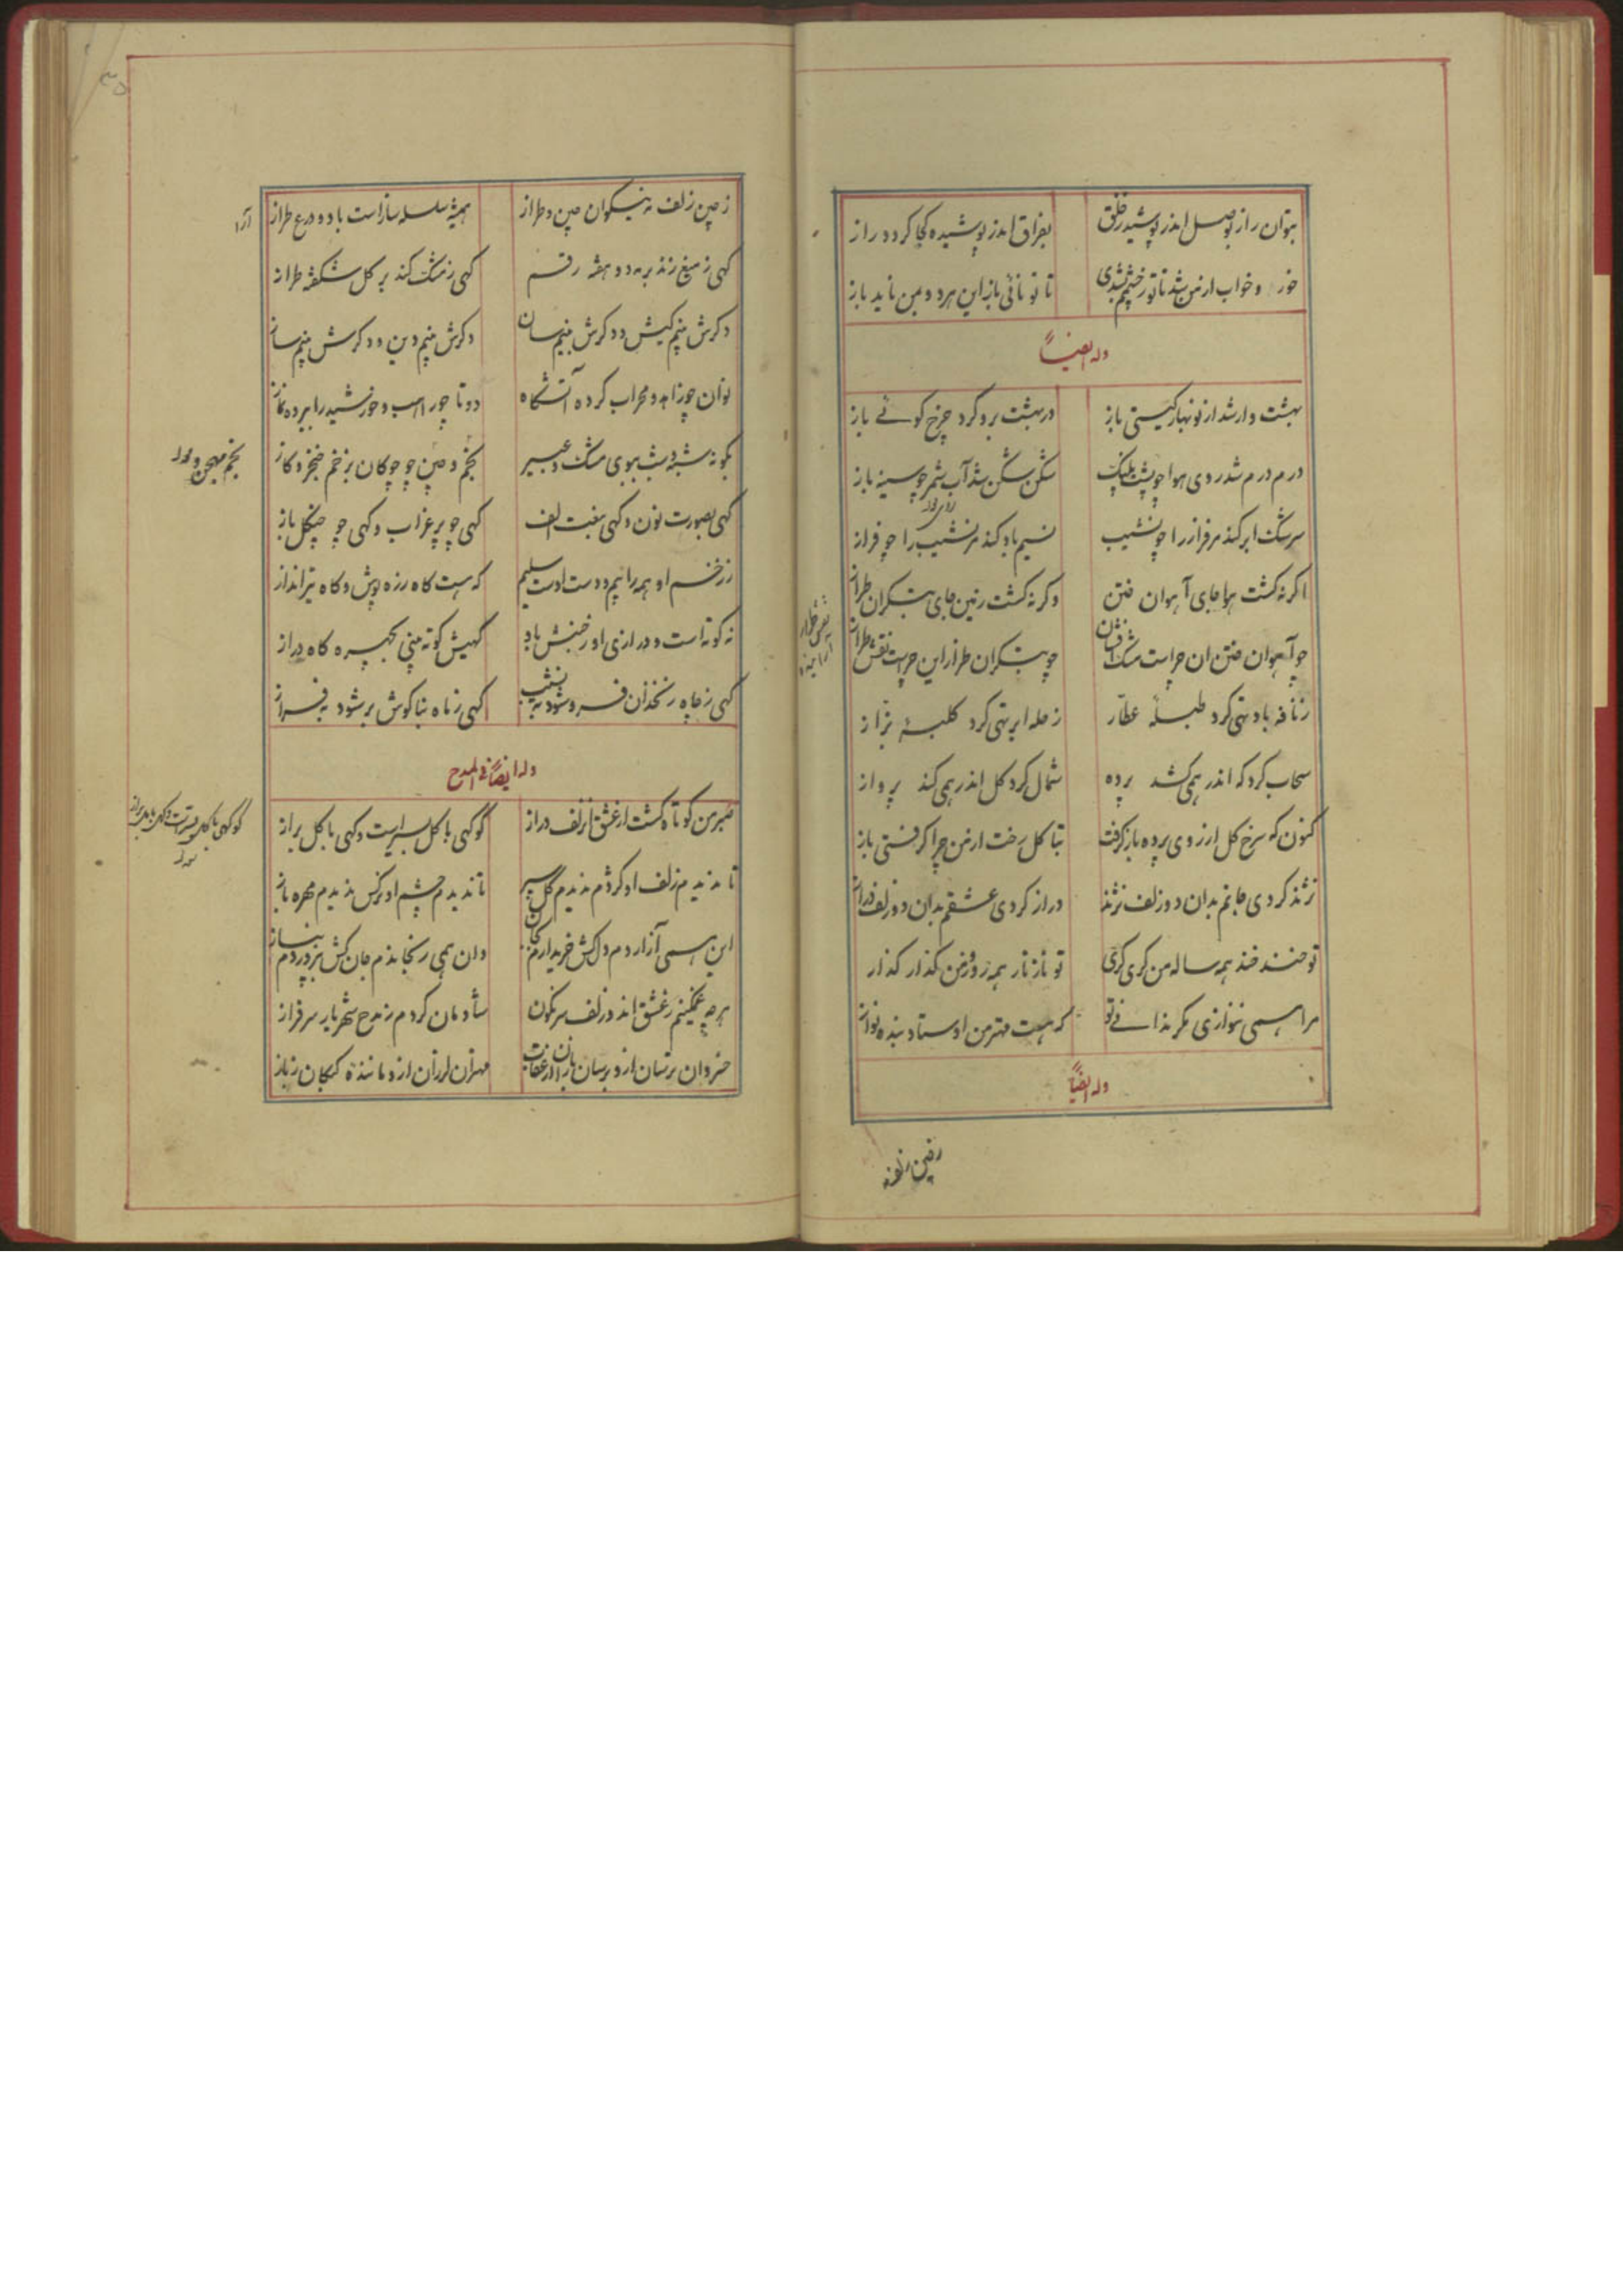 بتوان راز بوصل اندر پوشید ز خلق بفراق اندر پوشیده کجا گردد راز
خور و خواب از من شد تا تو ز چشمم شدی تا تو نائی باز این هر دو بمن ناید باز
وله ایضاً
بهشت وار شد از نو بهار گیتی باز در بهشت برو کرد چرخ کوئے باز
درم درم شد روی هوا چو پشت پلنگ شکن شکن شد آب شمر چو سینه باز
سرشک ابر کند مر فراز را چو نشیب نسیم باد کند مر نشیب را چو فراز
اگر نه گشت هوا جای آهوان ختن وگر نه گشت زمین جای بتگران طراز
چو آهوان ختن ان چراست مشک فشان چو بتگران طراز این چراست نقش طراز
ز نافه باد تهی کرد طبلهٔ عطّار ز حله ابر تهی کرد کلبهٔ بزّاز
سحاب گرد که اندر همی کشد پرده شمال گرد گل اندر همی کند پرواز
کنون که سرخ گل از روی پرده باز گرفت بتا گل رخت از من چرا گرفتی باز
نژند کردی جانم بدان دو زلف نژند دراز کردی عشقم بدان دو زلف دراز
تو خند خند همه ساله من گری گری تو ناز ناز همه روز و من گذار گذار
مرا همی ننوازی مگر ندانے تو که هست مهتر من اوستاد بنده نواز
وله ایضاً
ز چین زلف
ز چین زلف نه نیکوان چین و طراز همیشه سلسله ساز است باد و درع طراز
گهی ز میغ زند بر مه دو هفته رقم گهی ز مشک کند بر گل شکفته طراز
دگرش بینم کیش و دگرش بینم سان دگرش بینم دین و دگرش بینم ساز
نوان چو زاهد و محراب کرده آتشگاه دوتا چو راهب و خورشید را برده نماز
بگونه شبه و شب ببوی مشک و عبیر بخم و چین چو چوگان بزخم خنجر و گاز
بخم
گهی بصورت نون و گهی بنعت الف گهی چو پر غراب و گهی چو چنگل باز
ز زخم او همه را بیم و دست اوست سلیم که هست گاه زره پوش و گاه تیرانداز
نه کوته است و درازی او ز جنبش باد گهیش کوته بینی بچهره گاه دراز
گهی ز چاه زنخدان فرو شود به نشیب گهی ز ماه بناگوش بر شود به فراز
وله ایضاً فی المدح
صبر من کوتاه گشت از عشق آن زلف دراز گو گهی با گل بسرایست و گهی با گل براز
تا ندیدم زلف او کژدم ندیدم گل سپر تا ندیدم چشم او نرگس ندیدم مهره باز
این همی آزاردم دل کش خریدارم بجان وان همی رنجاندم جان کش بپروردم بناز
هر چه غمگینم ز عشق اندر زلف سرنگون شادمان گردم ز مدح شهریار سرفراز
خسروان ترسان ازو برسان بازان از عقاب مهتران لرزان ازو مانندهٔ کبکان ز باز